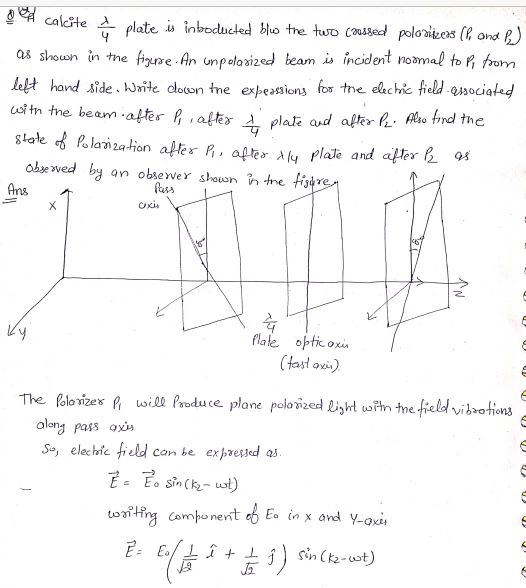 A calcite λ/4 plate is introducted b/w the two crossed polarizers (P1 and P2)
as shown in the figure. An unpolarized beam is incident normal to P1 from
left hand side. Write down the expressions for the electric field associated
with the beam after P1, after λ/4 plate and after P2. Also find the
state of Polarization after P1, after λ/4 plate and after P2 as
observed by an observer shown in the figure.
Ans
Pass
axis
X
Y
Z
λ/4
Plate optic axis
(fast axis)
The Polarizer P1 will Produce plane polarized light with the field vibrations
along pass axis
So, electric field can be expressed as.
E⃗ = E⃗0 sin(kz - wt)
writing component of E0 in x and Y-axis
E⃗ = E0(1/√2 î + 1/√2 ĵ) sin(kz-wt)